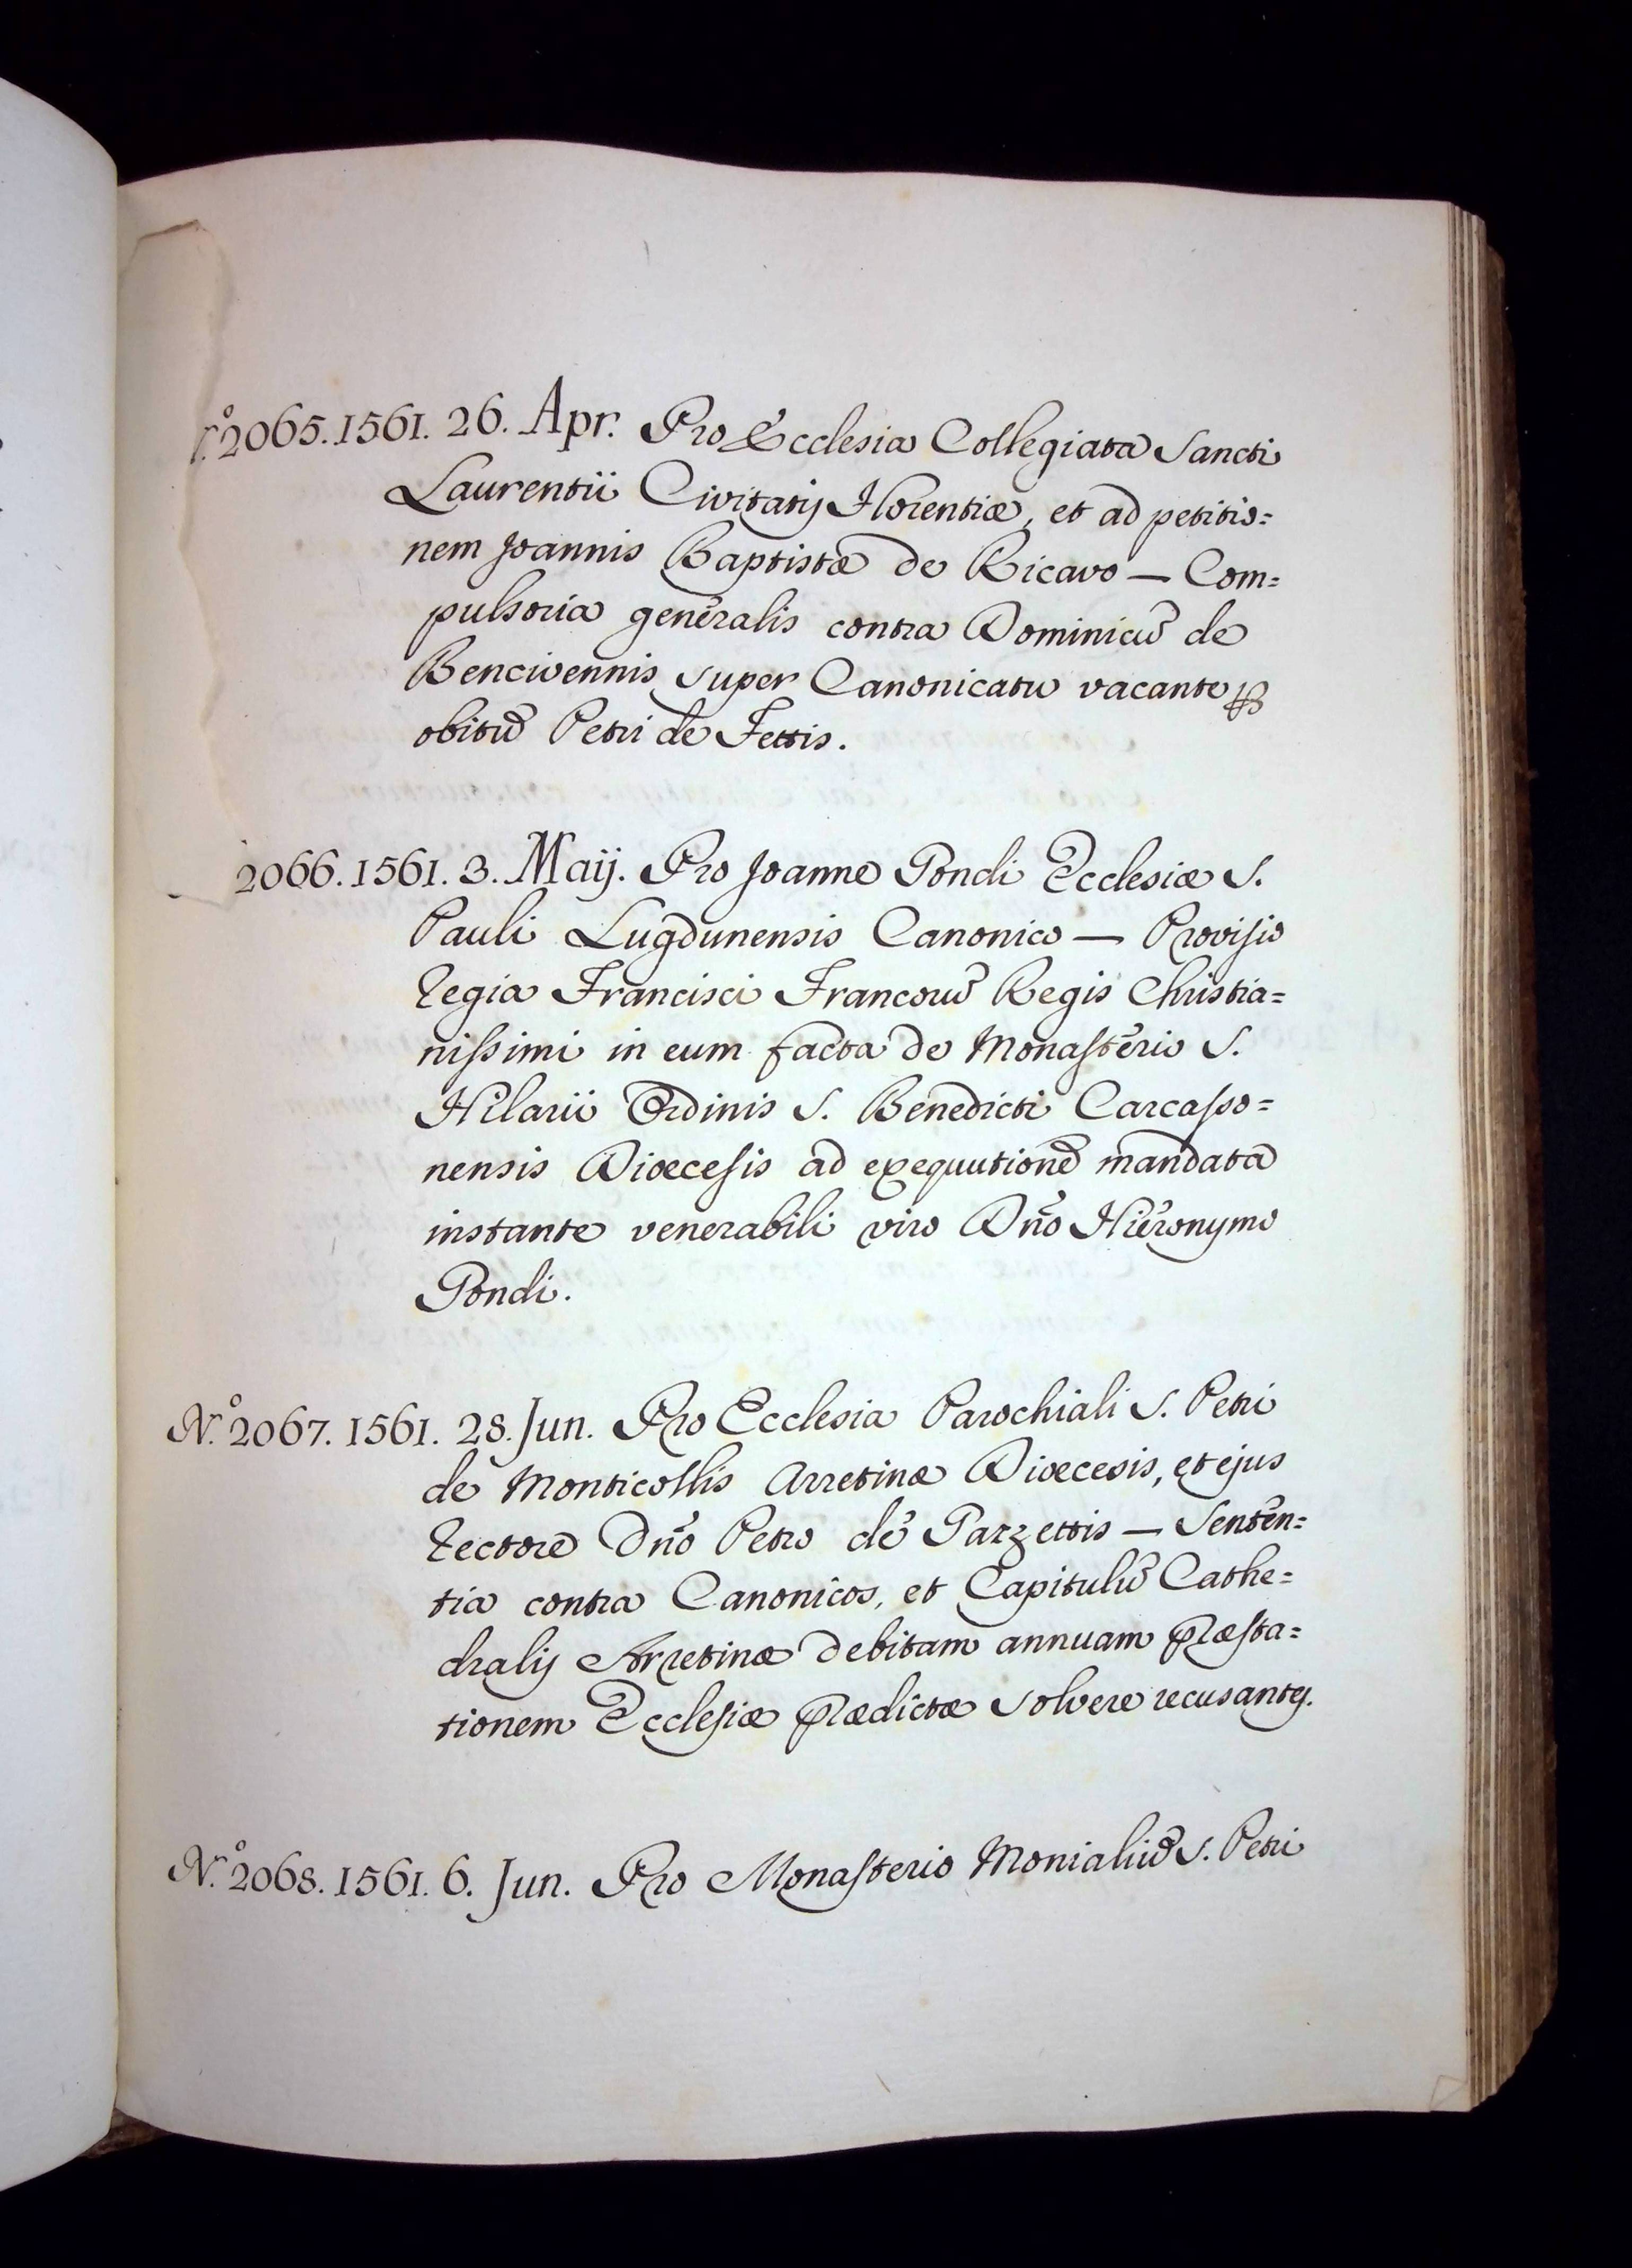 N.º 2065. 1561. 26. Apr. Pro Ecclesia Collegiata Sancti
Laurentii Civitatis Florentiæ, et ad petitio=
nem Joannis Baptistæ de Ricavo — Com=
pulsoria generalis contra Dominicū de
Bencivennis super Canonicatu vacante ꝑ
obitū Petri de Fettis.
2066. 1561. 3. Maij. Pro Joanne Pondi Ecclesiæ S.
Pauli Lugdunensis Canonico — Provisio
Regia Francisci Francorū Regis Christia=
nissimi in eum facta de Monasterio S.
Hilarii Ordinis S. Benedicti Carcasso=
nensis Diœcesis ad exequutionē mandata
instante venerabili viro Dño Hieronymo
Pondi.
N.º 2067. 1561. 28. Jun. Pro Ecclesia Parochiali S. Petri
de Monticollis Arretinæ Diœcesis, et ejus
Rectore Dño Petro de Pazzettis — Senten=
tia contra Canonicos, et Capitulū Cathe=
dralis Arretinæ debitam annuam præsta=
tionem Ecclesiæ prædictæ solvere recusantes.
N.º 2068. 1561. 6. Jun. Pro Monasterio Monialiū S. Petri